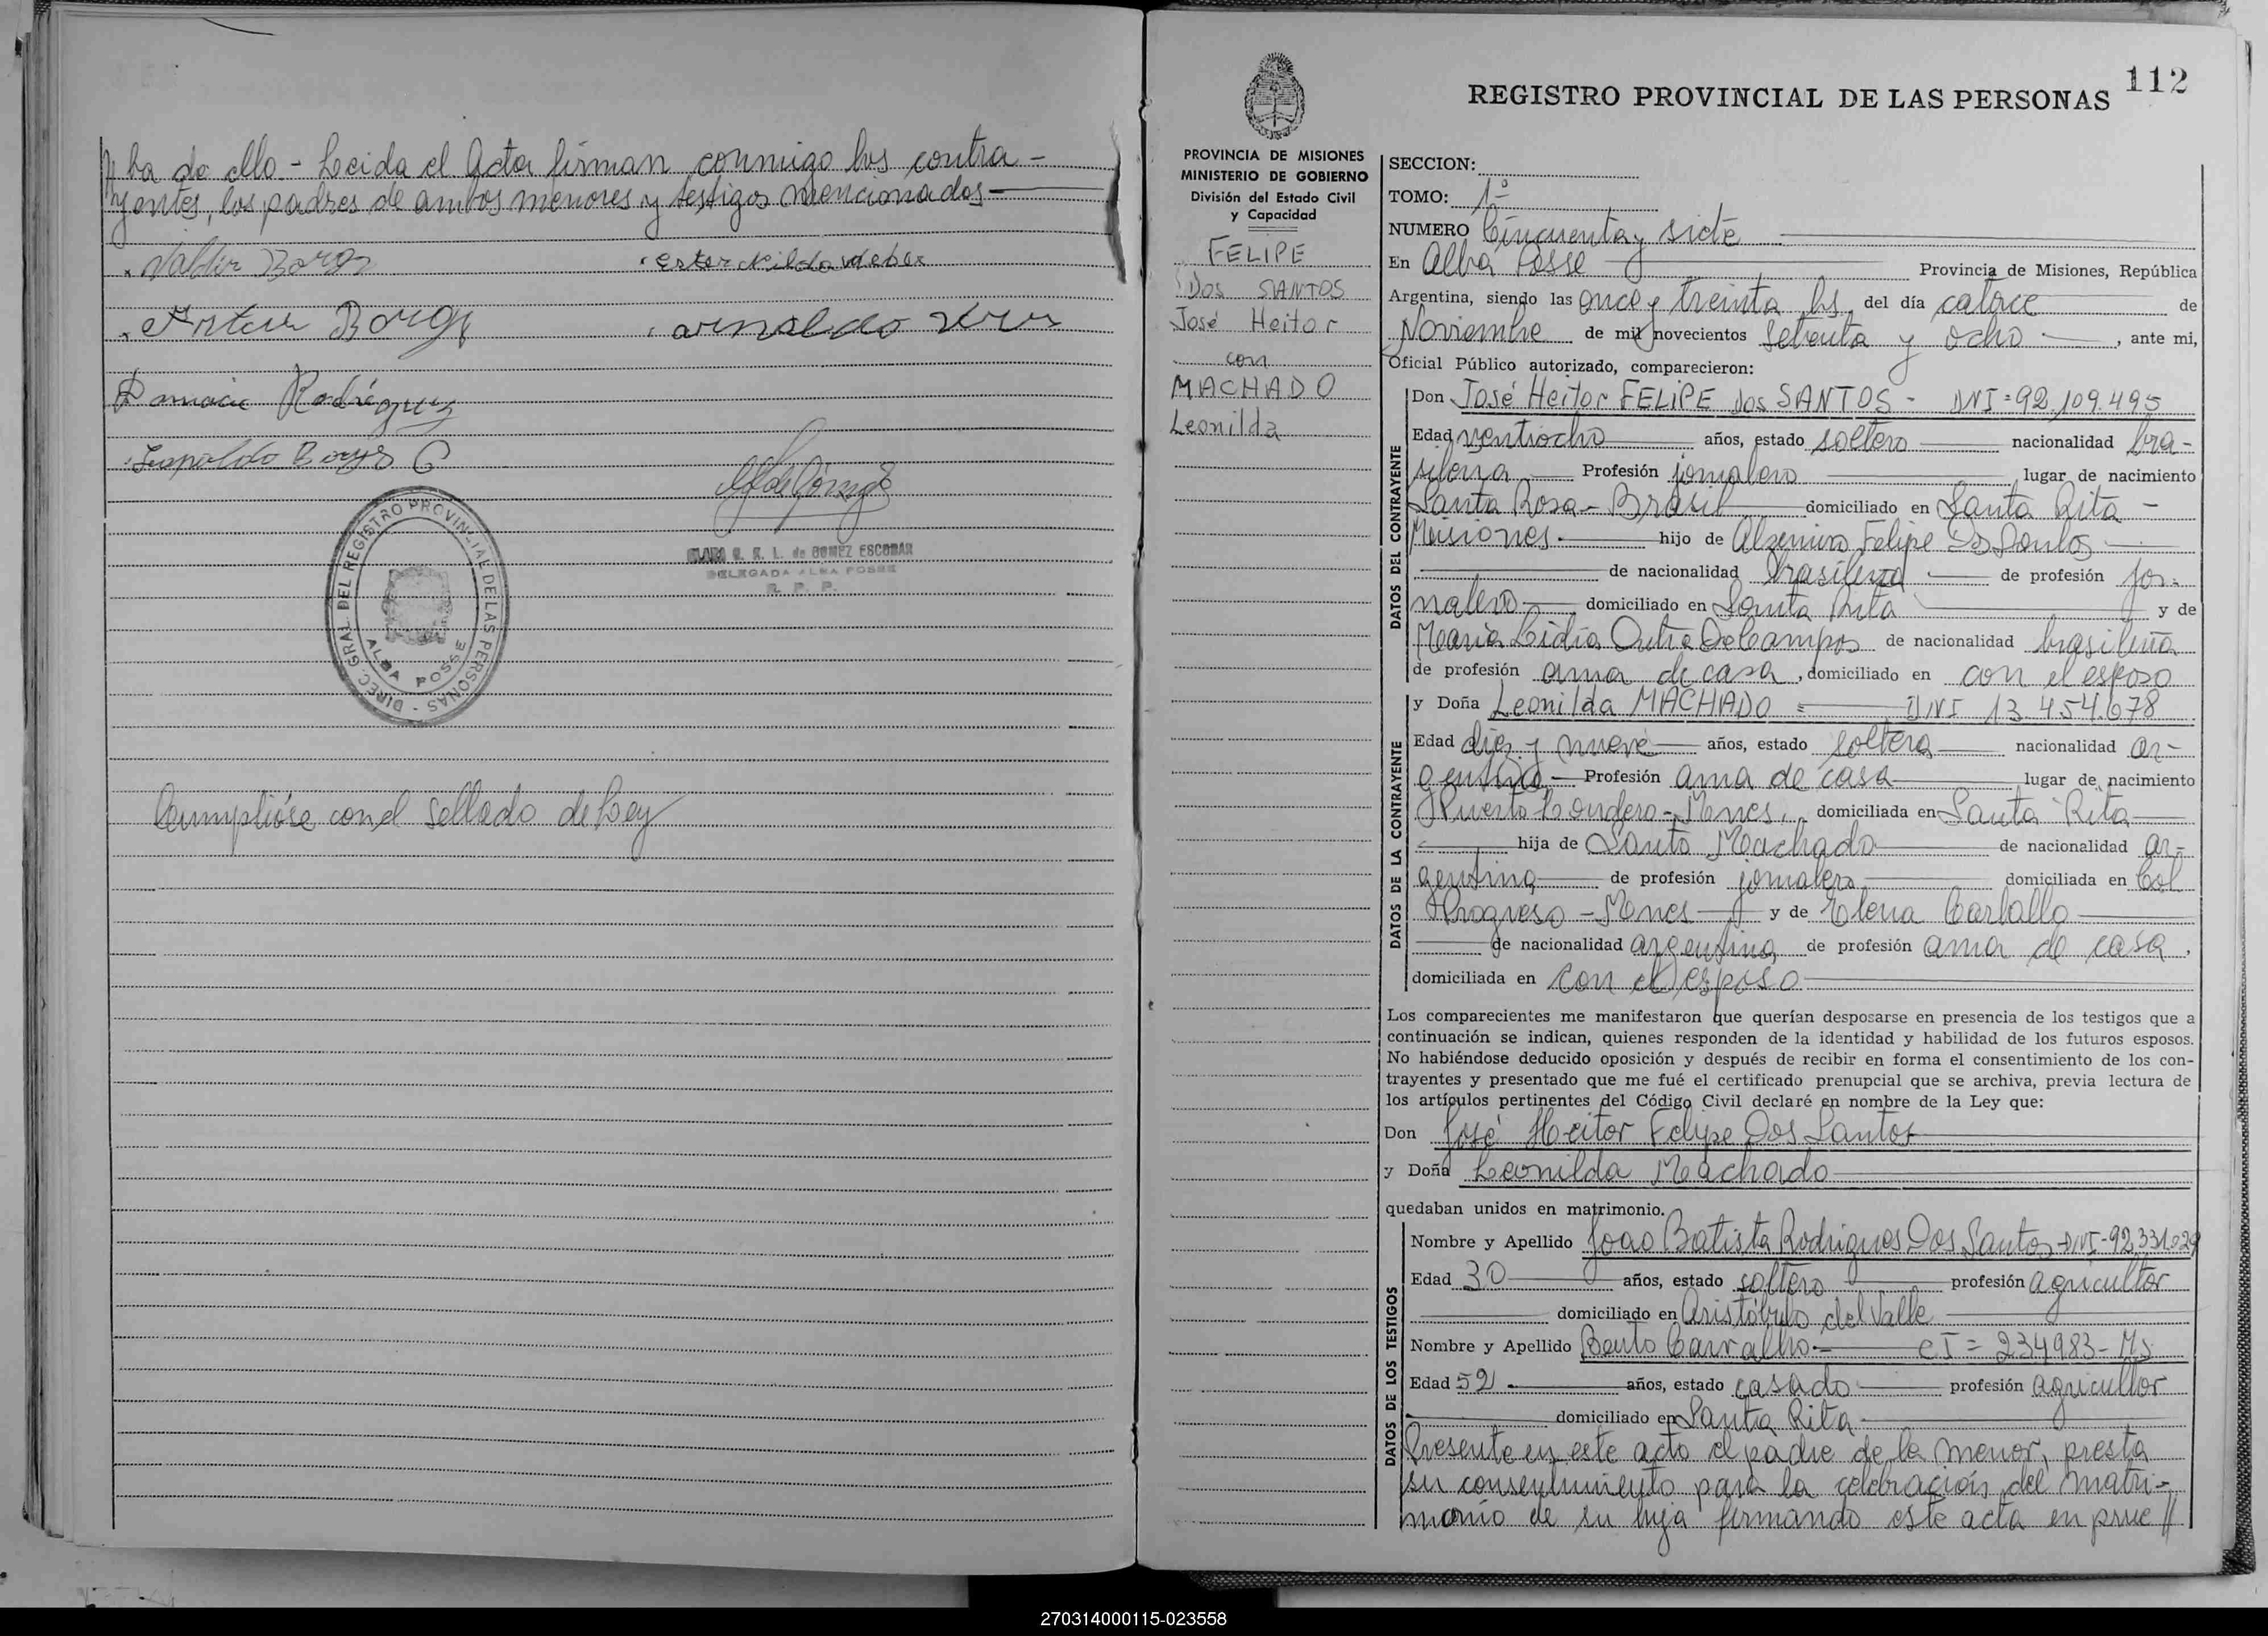 ba de ello - Leida el Acta firman conmigo los contra-
yentes, los padres de ambos menores y testigos mencionados
Valdir Borges
ester nilda weber
Borge
arnaldo
Rodríguez
Leopoldo Borges C
DIREC. GRAL. DEL REGISTRO PROVINCIAL DE LAS PERSONAS -
ALBA POSSE
CLARA de GOMEZ ESCOBAR
DELEGADA ALBA POSSE
R. P. P.
Cumplióse con el sellado de Ley
112
REGISTRO PROVINCIAL DE LAS PERSONAS
PROVINCIA DE MISIONES
MINISTERIO DE GOBIERNO
División del Estado Civil
y Capacidad
FELIPE
DOS SANTOS
José Heitor
con
MACHADO
Leonilda
SECCION:
TOMO: 1º
NUMERO Cincuenta y siete
En Alba Posse Provincia de Misiones, República
Argentina, siendo las once y treinta hs. del día catorce de
Noviembre de mil novecientos setenta y ocho, ante mi,
Oficial Público autorizado, comparecieron:
DATOS DEL CONTRAYENTE
Don José Heitor FELIPE Dos SANTOS - DNI=92.109.495
Edad ventiocho años, estado soltero nacionalidad bra-
silena Profesión jornalero lugar de nacimiento
Santa Rosa - Brasil domiciliado en Santa Rita -
Misiones.- hijo de Alzemiro Felipe Dos Santos
de nacionalidad brasilena de profesión jor-
nalero domiciliado en Santa Rita y de
Maria Lidia Outra De Campos de nacionalidad brasileña
de profesión ama de casa, domiciliado en con el esposo
DATOS DE LA CONTRAYENTE
y Doña Leonilda MACHADO = DNI 13.454.678
Edad diez y nueve años, estado soltera nacionalidad ar-
gentina - Profesión ama de casa lugar de nacimiento
Puerto Londero - Mnes. domiciliada en Santa Rita
hija de Santo Machado de nacionalidad ar-
gentina de profesión jornalero domiciliada en Col
Progreso - Mnes y de Elena Carballo
de nacionalidad argentina, de profesión ama de casa,
domiciliada en con el esposo
Los comparecientes me manifestaron que querían desposarse en presencia de los testigos que a
continuación se indican, quienes responden de la identidad y habilidad de los futuros esposos.
No habiéndose deducido oposición y después de recibir en forma el consentimiento de los con-
trayentes y presentado que me fué el certificado prenupcial que se archiva, previa lectura de
los artículos pertinentes del Código Civil declaré en nombre de la Ley que:
Don José Heitor Felipe Dos Santos
y Doña Leonilda Machado
quedaban unidos en matrimonio.
DATOS DE LOS TESTIGOS
Nombre y Apellido Joao Batista Rodrigues Dos Santos - DNI-92.331.029
Edad 30 años, estado soltero profesión agricultor
domiciliado en Aristóbulo del Valle
Nombre y Apellido Bento Carvalho - CI = 234983 - Ms.
Edad 52 años, estado casado profesión agricultor
domiciliado en Santa Rita
Presente en este acto el padre de la menor, presta
su consentimiento para la celebración del matri-
monio de su hija firmando este acta en prue //
270314000115-023558